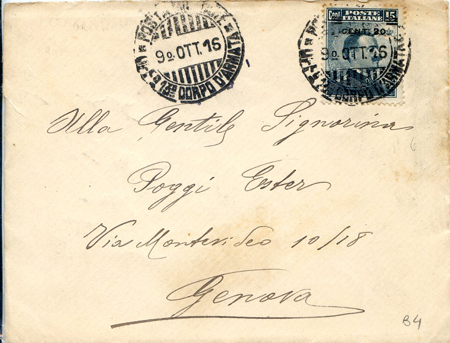 9 OTT. 16
CORPO D'ARMATA
Cent. POSTE ITALIANE 15
CENT. 20
9 OTT. 16
CORPO D'ARMATA
Alla Gentile Signorina
Poggi Ester
Via Montevideo 10/18
Genova
84